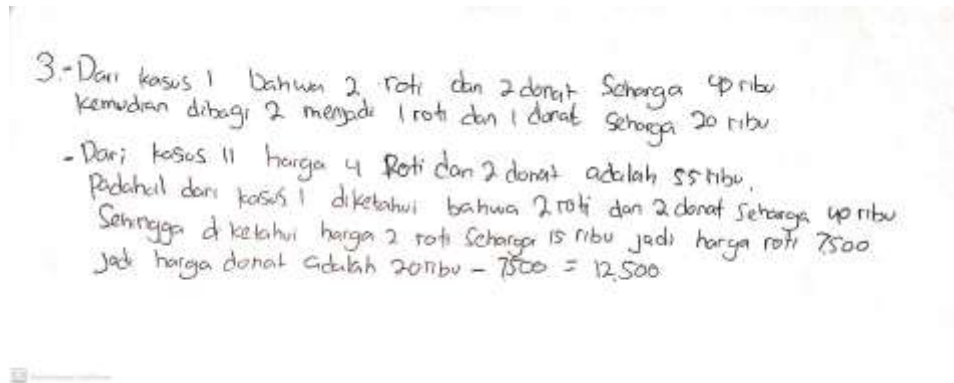 3.- Dari kasus 1 bahwa 2 roti dan 2 donat Seharga 40 ribu
kemudian dibagi 2 menjadi 1 roti dan 1 donat seharga 20 ribu
- Dari kasus 11 harga 4 Roti dan 2 donat adalah 55 ribu.
Padahal dari kasus 1 diketahui bahwa 2 roti dan 2 donat Seharga 40 ribu
Sehingga di ketahui harga 2 roti Seharga 15 ribu jadi harga roti 7500
Jadi harga donat adalah 20 ribu - 7500 = 12.500